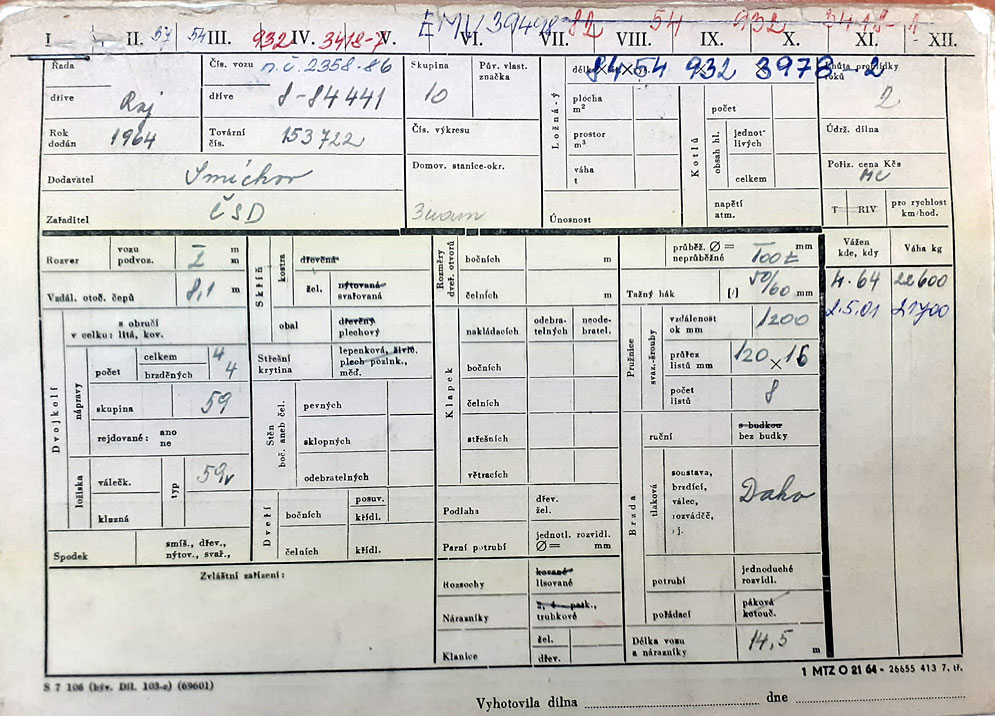 EMV 39498 82 54 932 3418-1
I II. 57 54 III. 932 IV. 3418-7 V. VI. VII. VIII. IX. X. XI. XII.
84 54 932 3978-2
Řada
dříve Raj
Čís. vozu n.č. 2358-86
dříve 8-84441
Skupina
10
Pův. vlast.
značka
Rok
dodán 1964
Tovární
čís. 153722
Čís. výkresu
Dodavatel Smíchov
Domov. stanice-okr.
Zařaditel ČSD
Znam
Ložná-ý
plocha
m²
prostor
m³
váha
t
Únosnost
Kotlů
počet
obsah hl.
jednot-
livých
celkem
napětí
atm.
Lhůta prohlídky
roků
2
Údrž. dílna
Poříz. cena Kčs
MC
T RIV
pro rychlost
km/hod.
Rozvor
vozu m
podvoz. I m
Vzdál. otoč. čepů 8,1 m
Dvojkolí
s obručí
v celku: litá, kov.
nápravy
počet
celkem 4
brzděných 4
skupina 59
rejdované: ano
ne
ložiska
válečk.
kluzná
typ 59v
Spodek
smíš., dřev.,
nýtov., svař.,
Zvláštní zařízení:
Skříň
kostra
dřevěná
žel. nýtovaná
svařovaná
obal
dřevěný
plechový
Střešní
krytina
lepenková, živič.
plech pozink.,
měď.
Stěn
boč. aneb čel.
pevných
sklopných
odebratelných
Dveří
bočních
posuv.
křídl.
čelních
křídl.
Rozměry
dveř. otvorů
bočních m
čelních m
Klapek
nakládacích
odebra-
telných
neode-
bratel.
bočních
čelních
střešních
větracích
Podlaha
dřev.
žel.
Parní potrubí
jednotl. rozvidl.
Ø = mm
Rozsochy
kované
lisované
Nárazníky
trubkové
Klanice
žel.
dřev.
Tažný hák
průběž. Ø =
neprůběžné mm
[/] 50/60 mm
Pružnice
svaz.-šrouby
vzdálenost
ok mm 1200
průřez
listů mm 120 × 16
počet
listů 8
Brzda
ruční
s budkou
bez budky
tlaková
soustava,
brzdící,
válec,
rozváděč,
j.
Dako
potrubí
jednoduché
rozvidl.
pořádací
páková
kotouč.
Délka vozu
s nárazníky 14,5 m
Vážen
kde, kdy
Váha kg
4.64 22600
2.5.01 21700
S 7 106 (býv. Díl. 103-c) (69601)
1 MTZ O 21 64 - 26655 413 7. tř.
Vyhotovila dílna dne